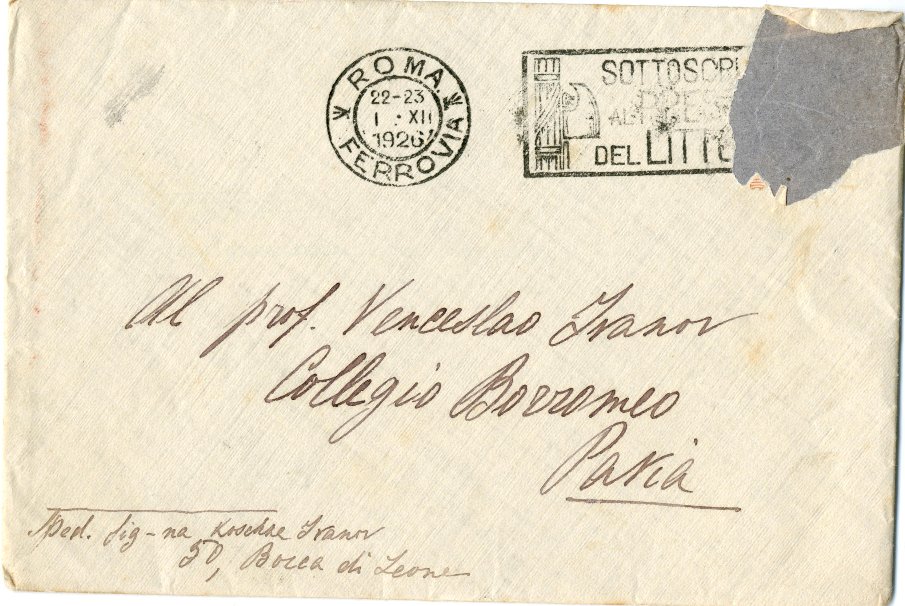 ROMA
22-23
1 · XII
1926
FERROVIA
SOTTOSCRI
AL PRES
DEL LITTO
Al prof. Venceslao Ivanov
Collegio Borromeo
Pavia
Sped. sig-na Ivanov
50, Bocca di Leone